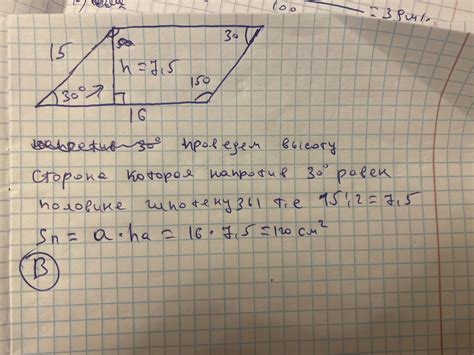 100 = 3
15
30
h = 7,5
150
30°
16
напротив 30° проведем высоту
сторона которая напротив 30° равен
половине гипотенузы т.е 15:2=7,5
Sп = a · ha = 16 · 7,5 = 120 см²
В